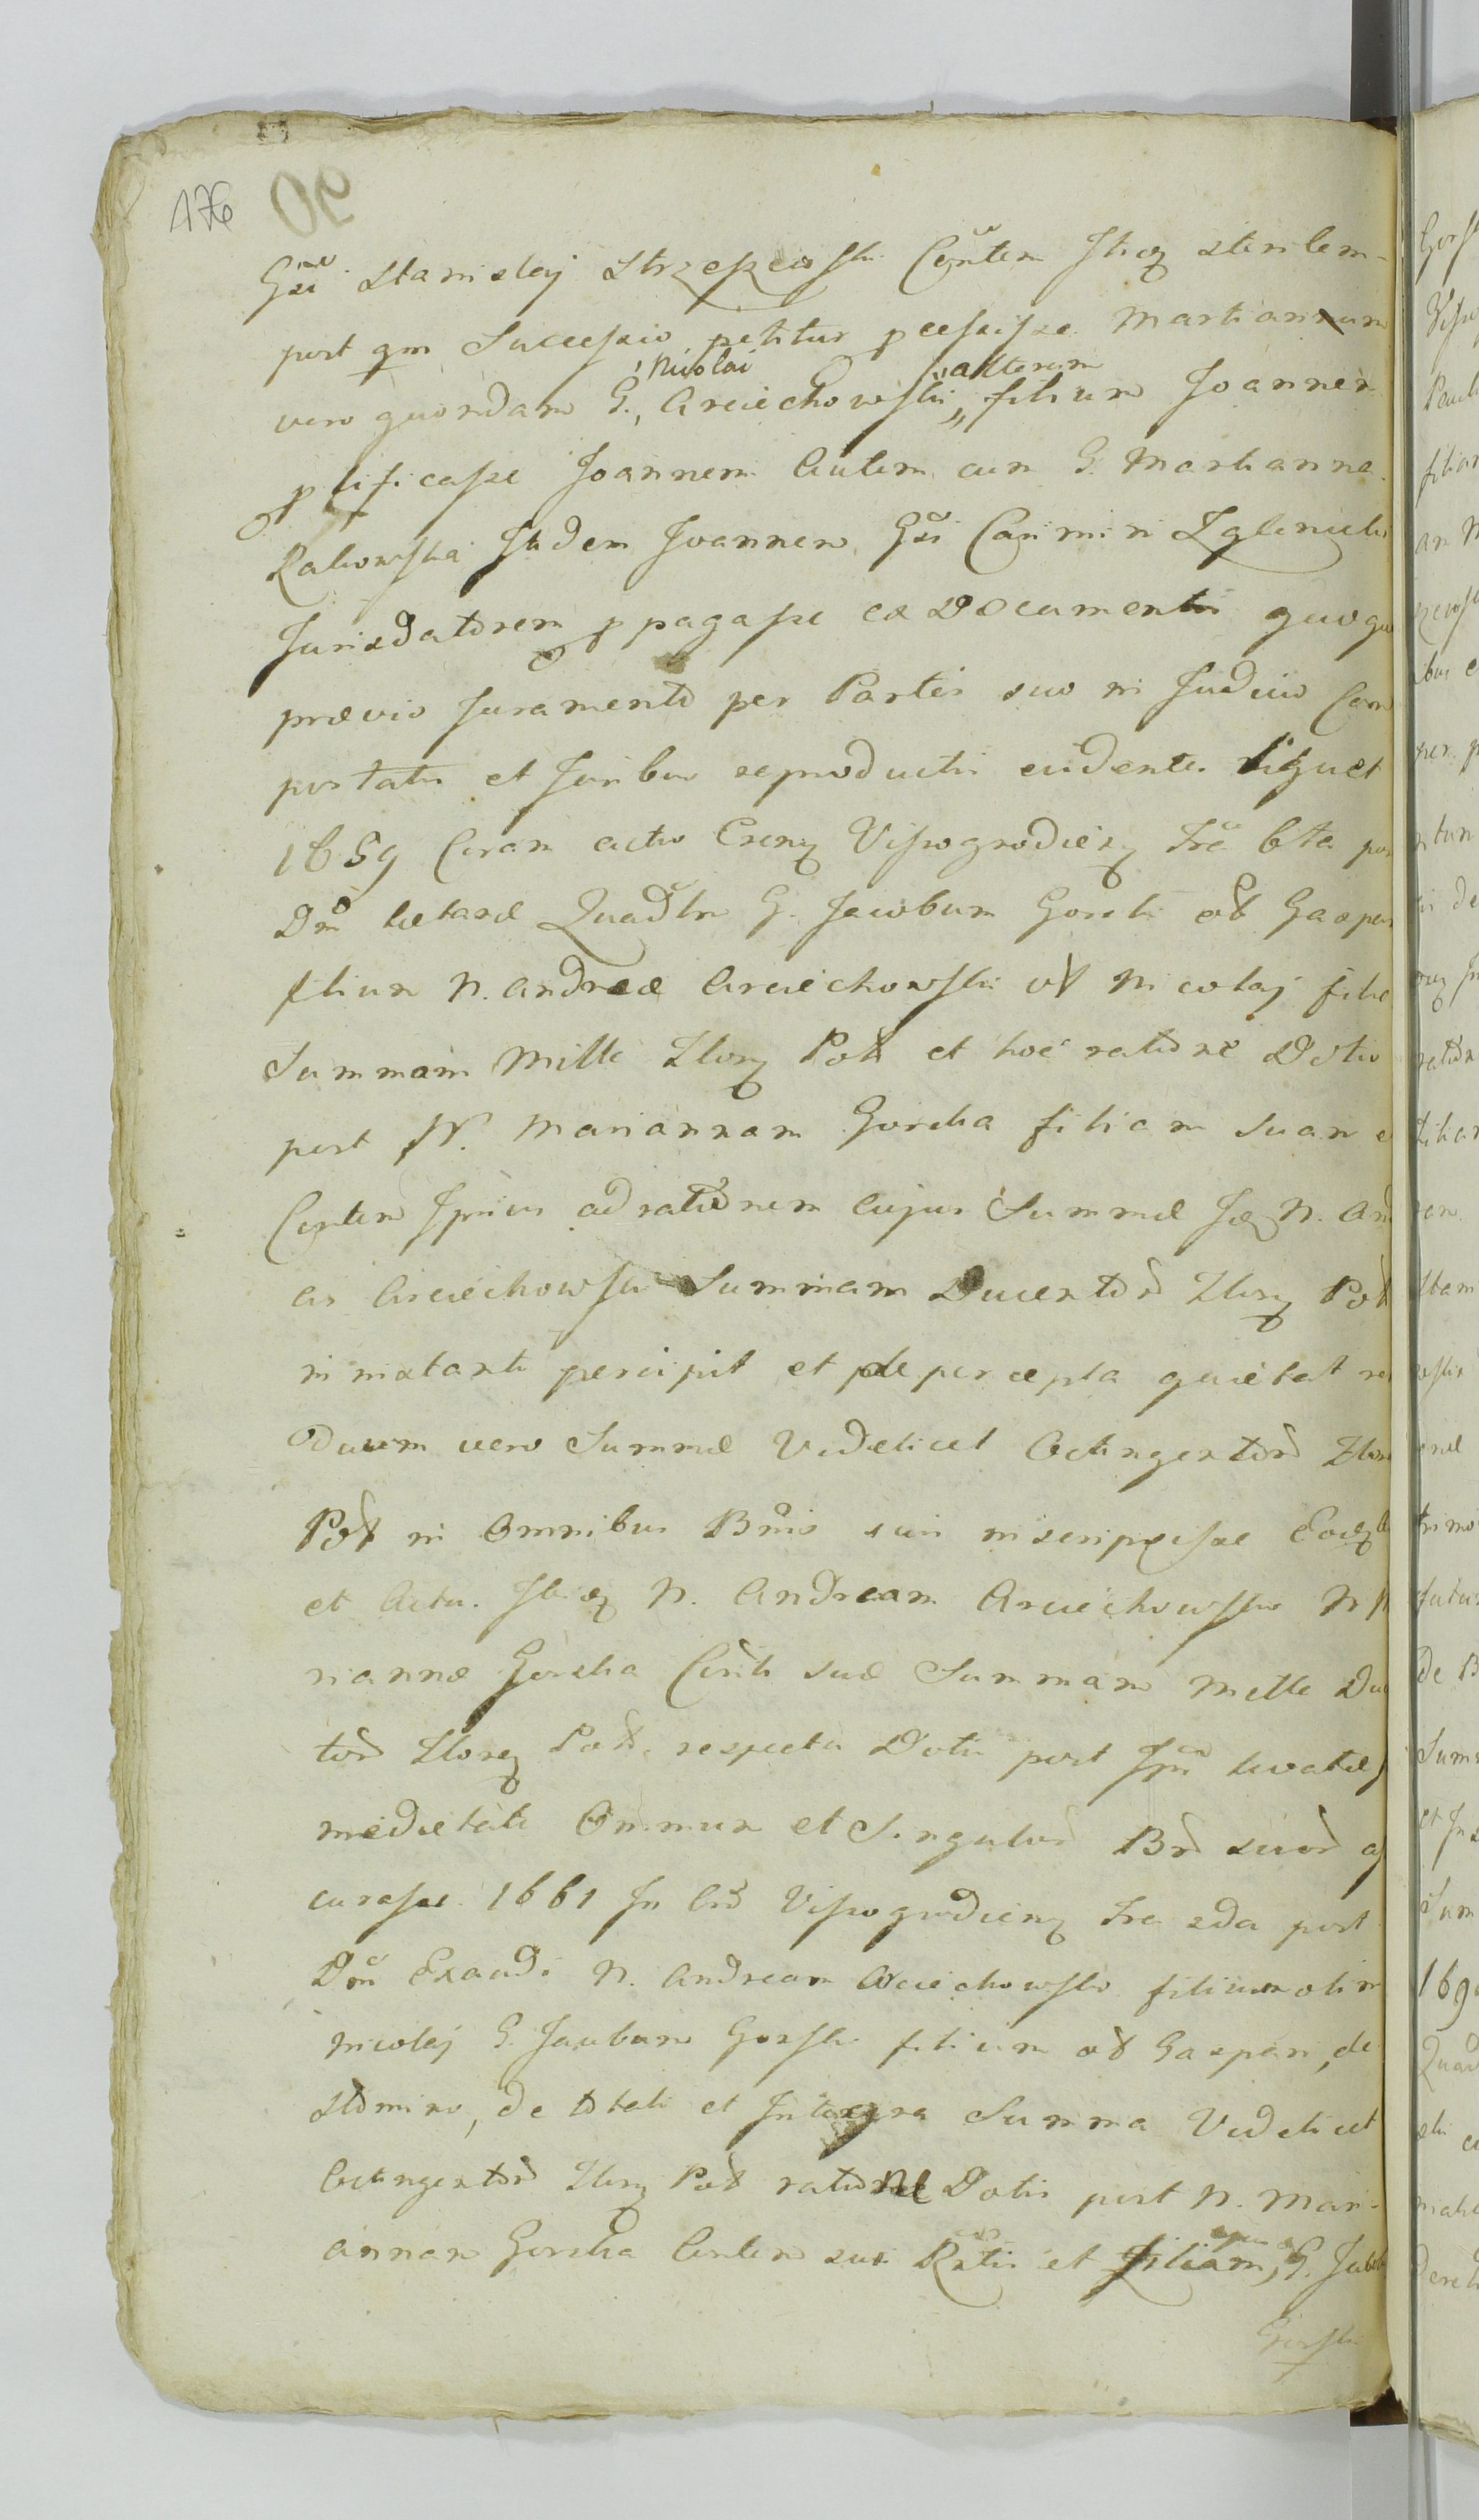 176 90
Gsi Stanislaj Strzeszewski Cgntem Itaq sterilem
post qm Successio petitur pcessisse Martiannum
vero quondam G. Nicolai Arciechowski alterum filium Joannem
plificasse Joannem Autem cum G. Martianna
Rakowska Itidem Joannem Gsi Casimiri Zglenicki
Jurisdatorem ppagasse ex Documentis quoque
prævio Juramento per Partes suo in Judicio Com
portatis et Juribus reproductis evidenter liquet
1659 Coram actis Crens Vissogrodiens Fra 6ta post
Dm lætare Quadlm G. Jacobum Gorski od Gaspari
filium N. Andreæ Arciechowski od Nicolaj filio
Summam Mille Flor Pol et hoc ratione Dotis
post N. Mariannam Gorska filiam suam
Contem Ipsius ad rationem cujus Summæ Is N. And
as Arciechowski Summam Ducentor Flor Pol
in instanti percipit et de percepta quietat re
siduum vero Summæ Videlicet Octingentor Flor
Pol in Omnibus Bnis suis inscripsisse Eodem
et Actu. Itaq N. Andream Arciechowski N M
riannæ Gorska Conti suæ Summam Mille Du
tor Flor Pol. respectu Dotis post Ipm levatæ
medietate Omnium et Singulor Br suor as
curasse 1661 In Cas Vissogrodiens Fra 2da post
Dm Exaudi N. Andream Arciechowski filium olim
Nicolaj G. Jacobum Gorski filium od Gaspari, de
Stomino, de totali et Integra Summa Videlicet
Octingentor Flor Pol ratione Dotis post N. Mari-
annam Gorska Contem sui Rntis et filiam, G. Jacobi
Gorski